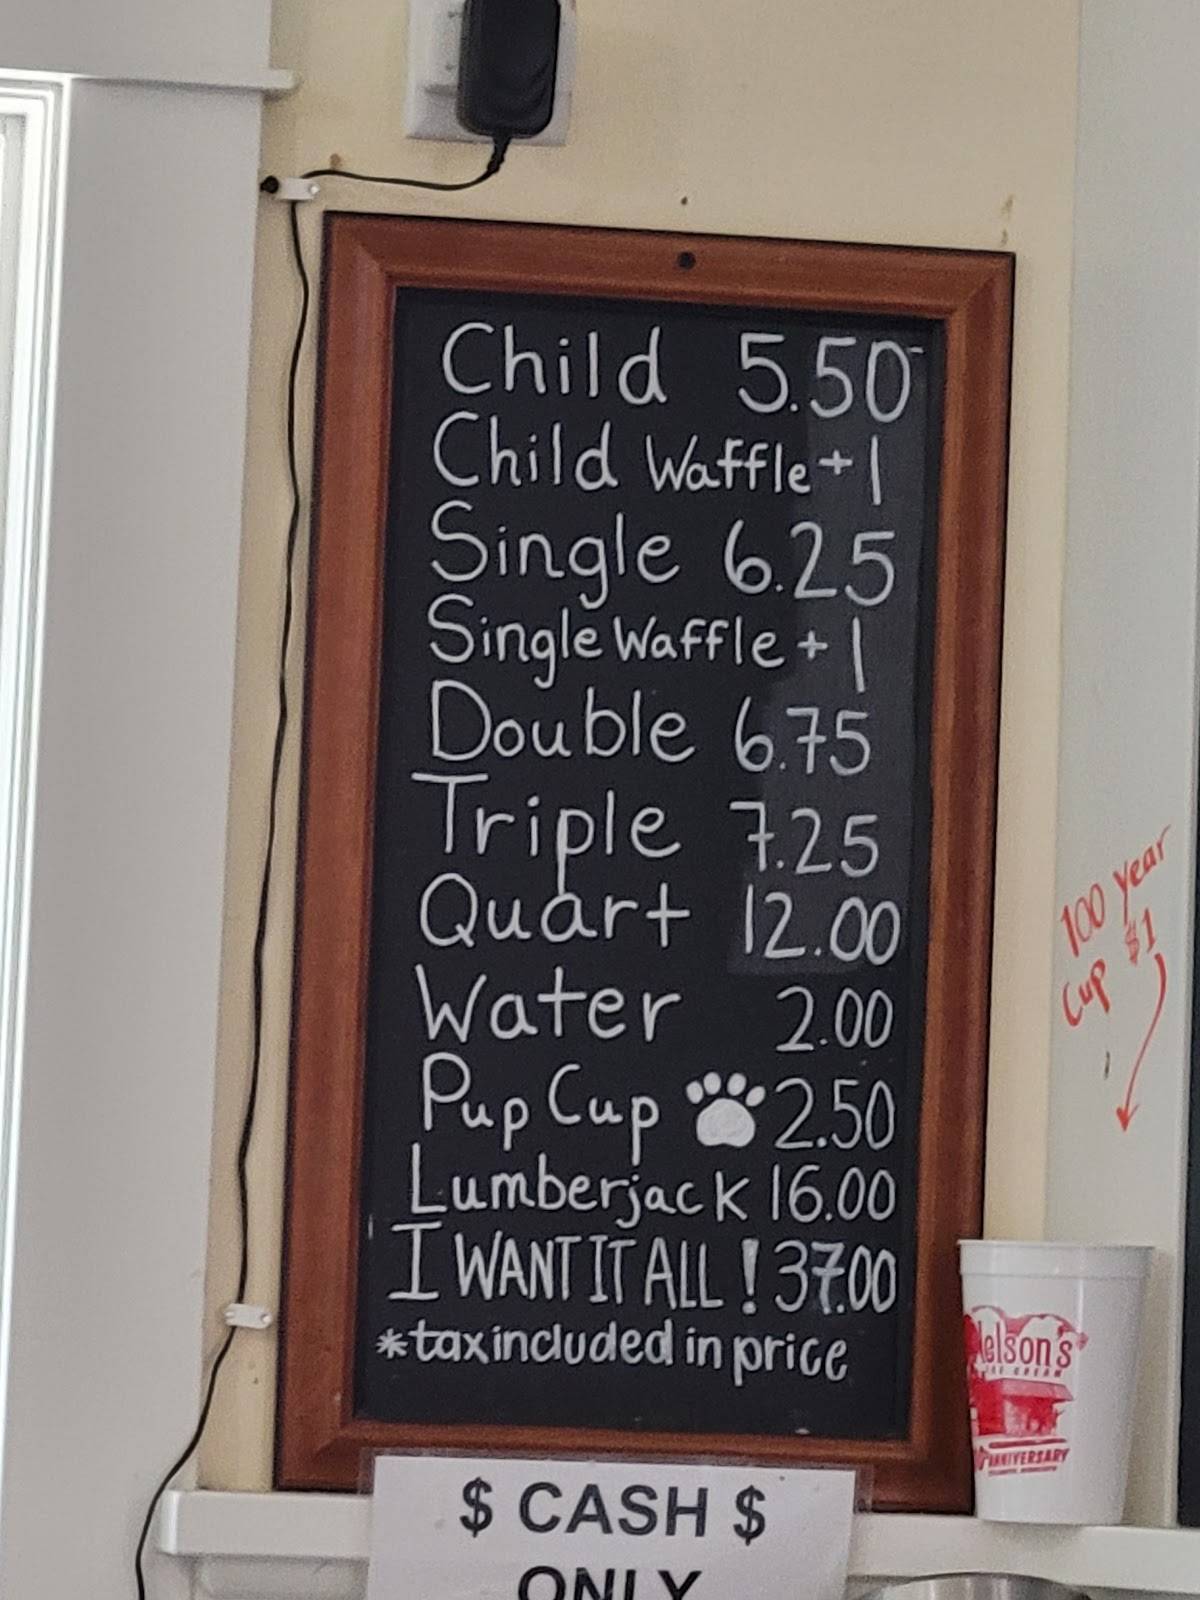 Child 5.50
Child Waffle + 1
Single 6.25
Single Waffle + 1
Double 6.75
Triple 7.25
Quart 12.00
Water 2.00
Pup Cup 2.50
Lumberjack 16.00
I WANT IT ALL ! 37.00
*tax included in price
$ CASH $
ONLY
100 Year
Cup $1
Nelson's
ICE CREAM
ANNIVERSARY